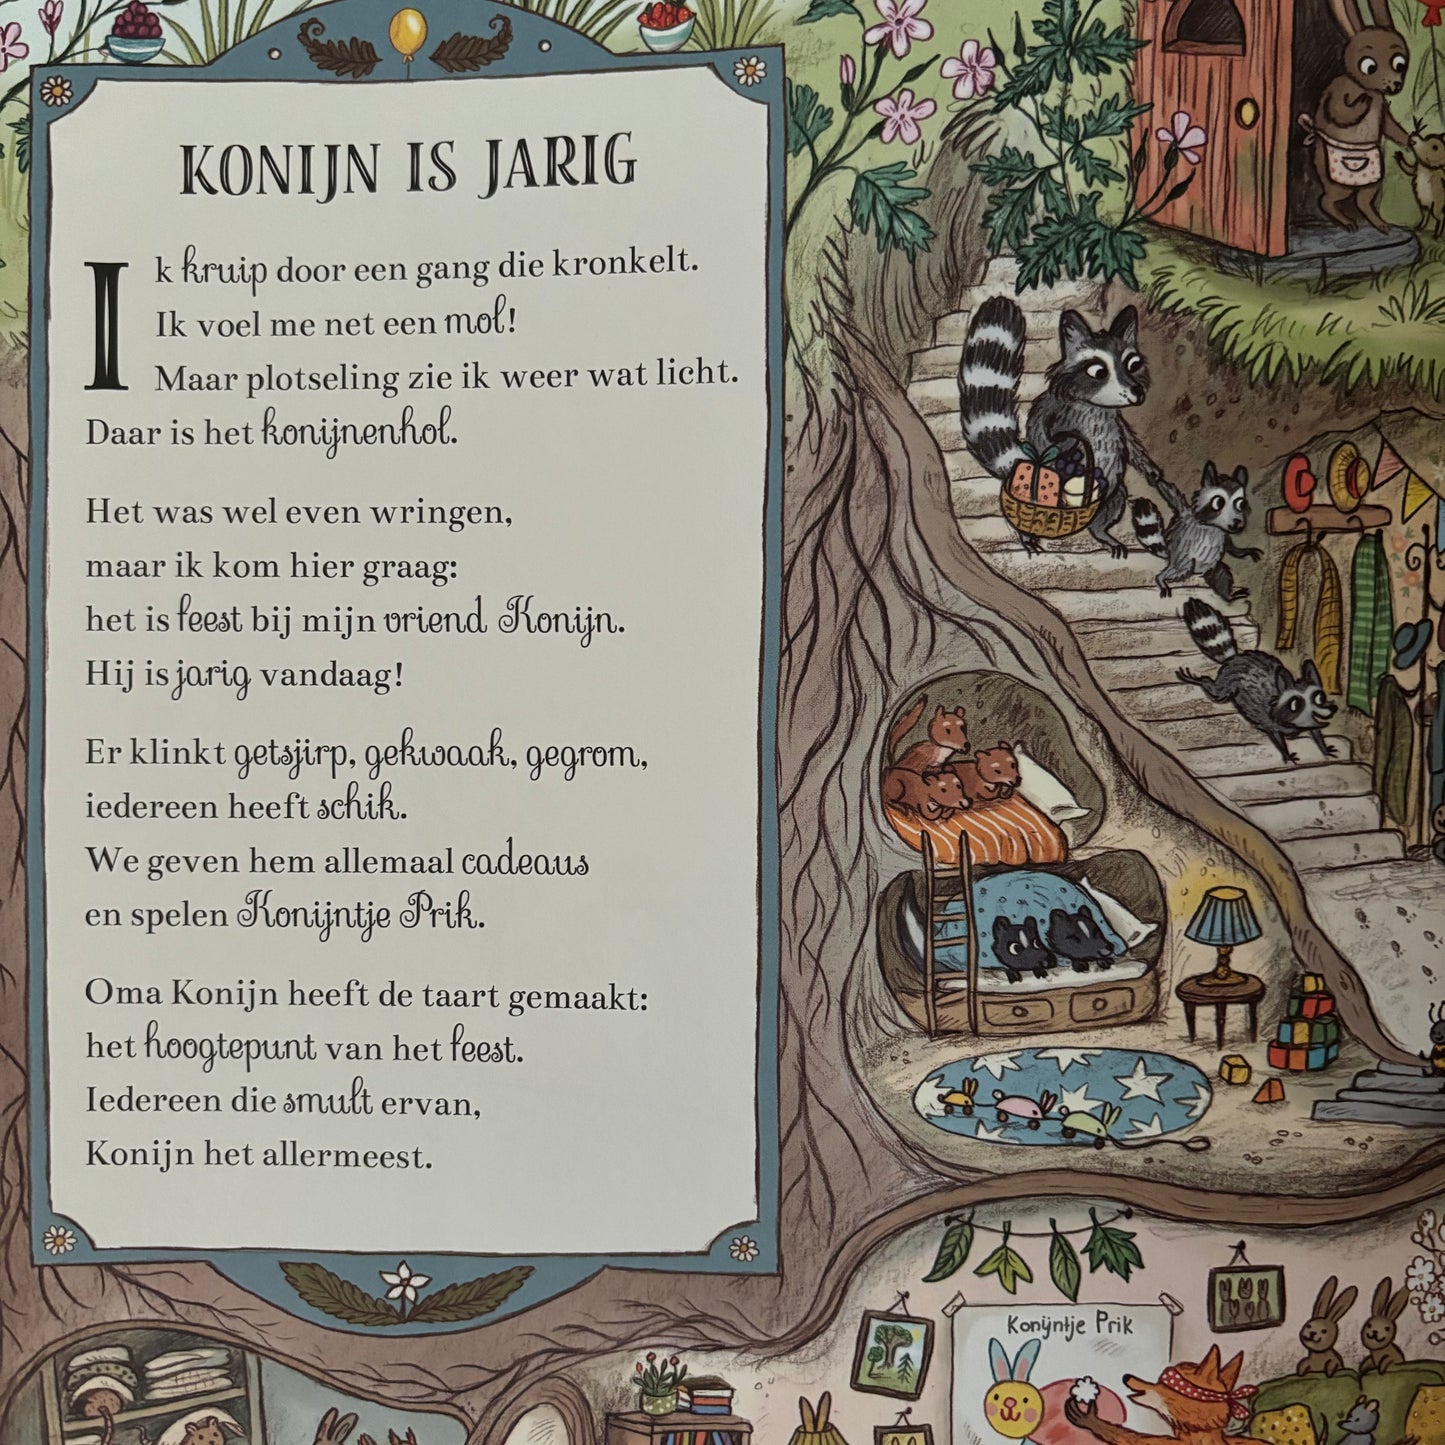 KONIJN IS JARIG
Ik kruip door een gang die kronkelt.
Ik voel me net een mol!
Maar plotseling zie ik weer wat licht.
Daar is het konijnenhol.
Het was wel even wringen,
maar ik kom hier graag:
het is feest bij mijn vriend Konijn.
Hij is jarig vandaag!
Er klinkt getsjirp, gekwaak, gegrom,
iedereen heeft schik.
We geven hem allemaal cadeaus
en spelen Konijntje Prik.
Oma Konijn heeft de taart gemaakt:
het hoogtepunt van het feest.
Iedereen die smult ervan,
Konijn het allermeest.
Konijntje Prik